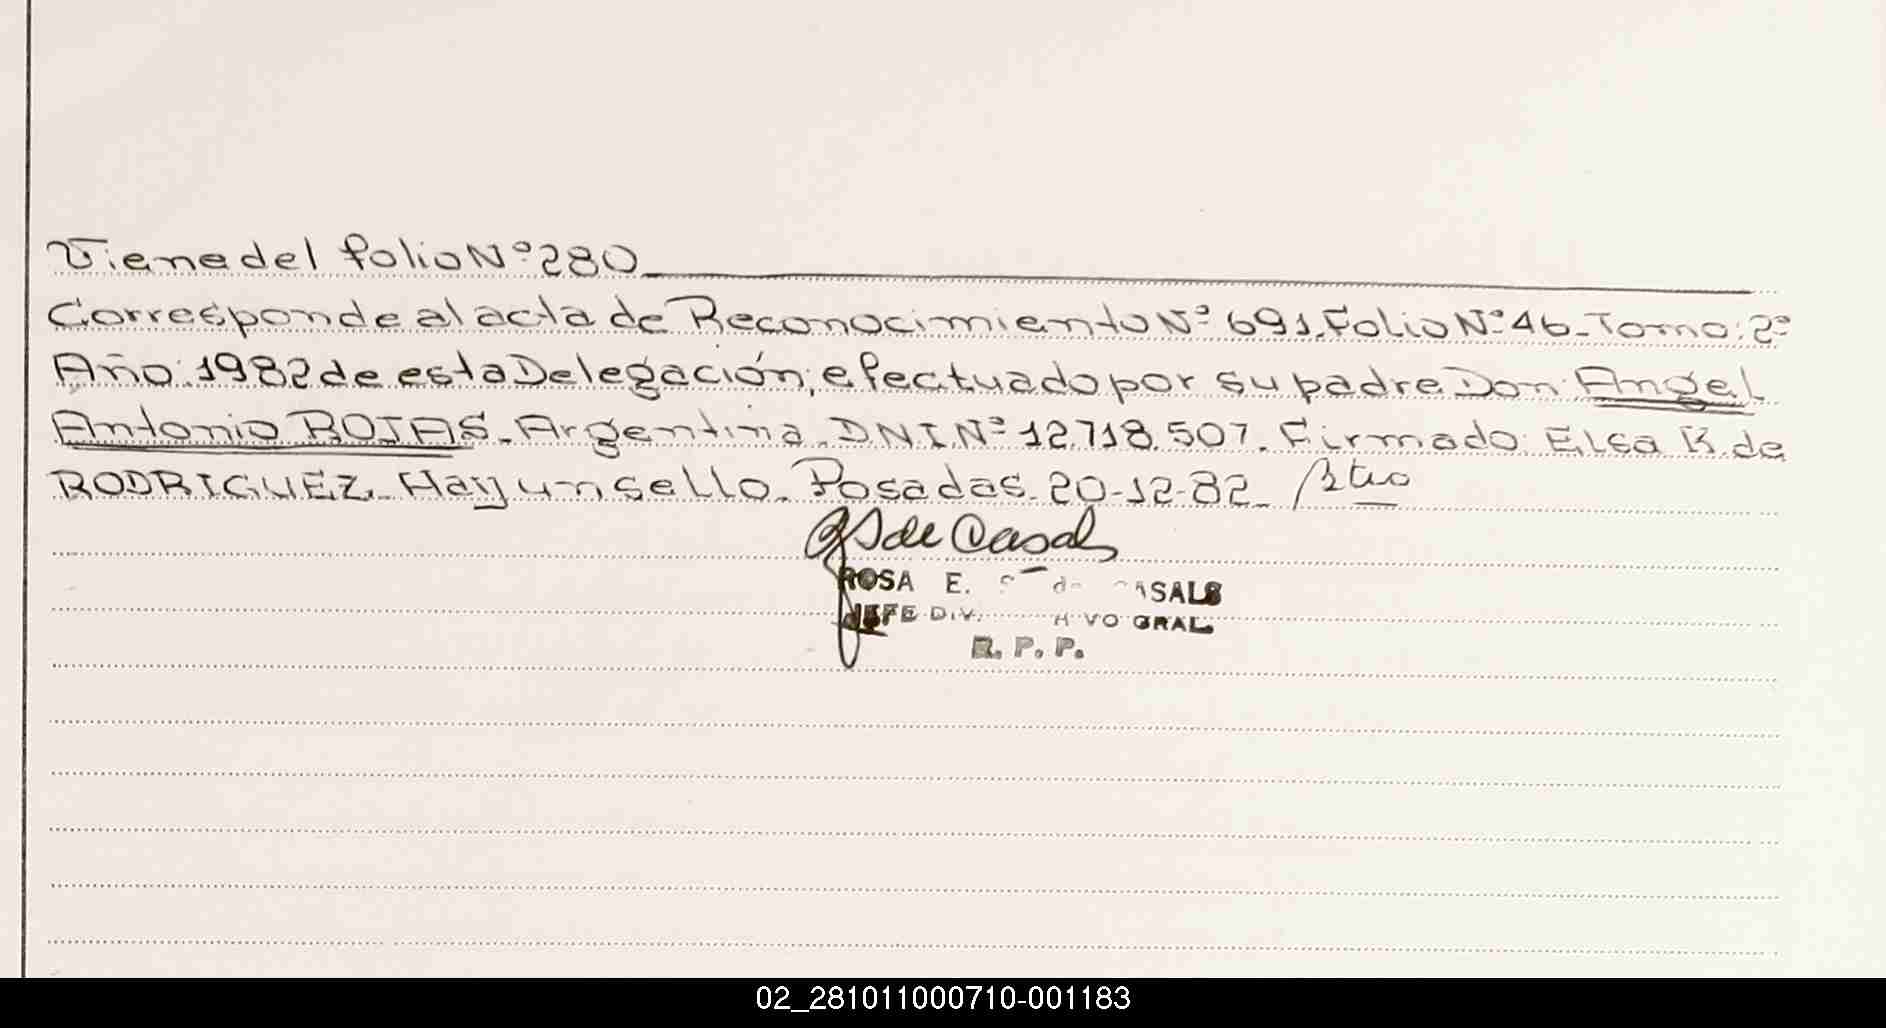 Viene del folio Nº 280
Corresponde al acta de Reconocimiento Nº 691. Folio Nº 46. Tomo: 2º
Año: 1982 de esta Delegación; efectuado por su padre Don: Angel
Antonio ROJAS. Argentina. DNI Nº 12.718.507. Firmado: Elsa K. de
RODRIGUEZ. Hay un sello. Posadas. 20-12-82_
de Casals
ROSA E. de CASALS
JEFE DIV. GRAL.
R. P. P.
02_281011000710-001183